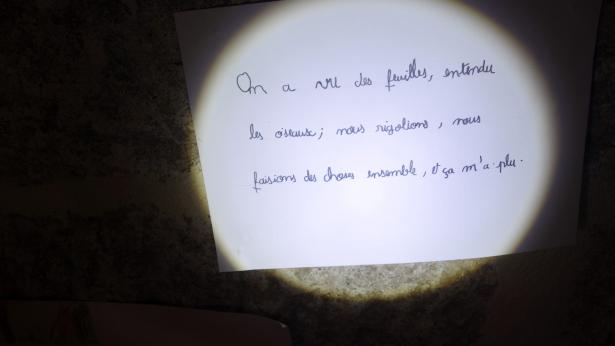 On a vu des feuilles, entendu
les oiseaux; nous rigolions, nous
faisions des choses ensemble, et ça m'a plu.